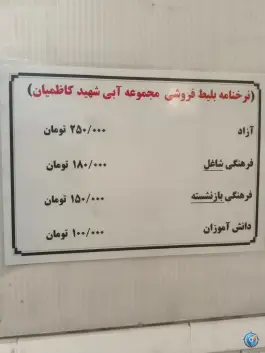 (نرخنامه بلیط فروشی مجموعه آبی شهید کاظمیان)
آزاد ۲۵۰/۰۰۰ تومان
فرهنگی شاغل ۱۸۰/۰۰۰ تومان
فرهنگی بازنشسته ۱۵۰/۰۰۰ تومان
دانش آموزان ۱۰۰/۰۰۰ تومان